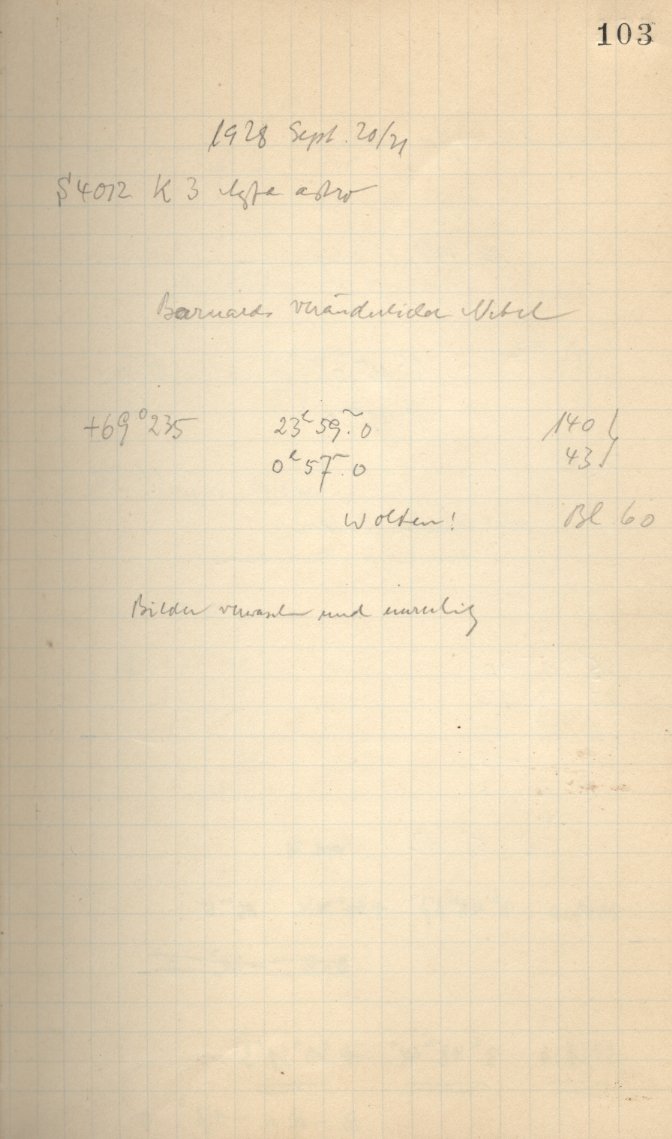 103
1928 Sept. 20/21
S 4012 K 3 Agfa astro
Barnards veränderlicher Nebel
+69°235 23ʰ59ᵐ.0 140
0ʰ57ᵐ.0 43
Wolken! Bl 60
Bilder verwaschen und unruhig